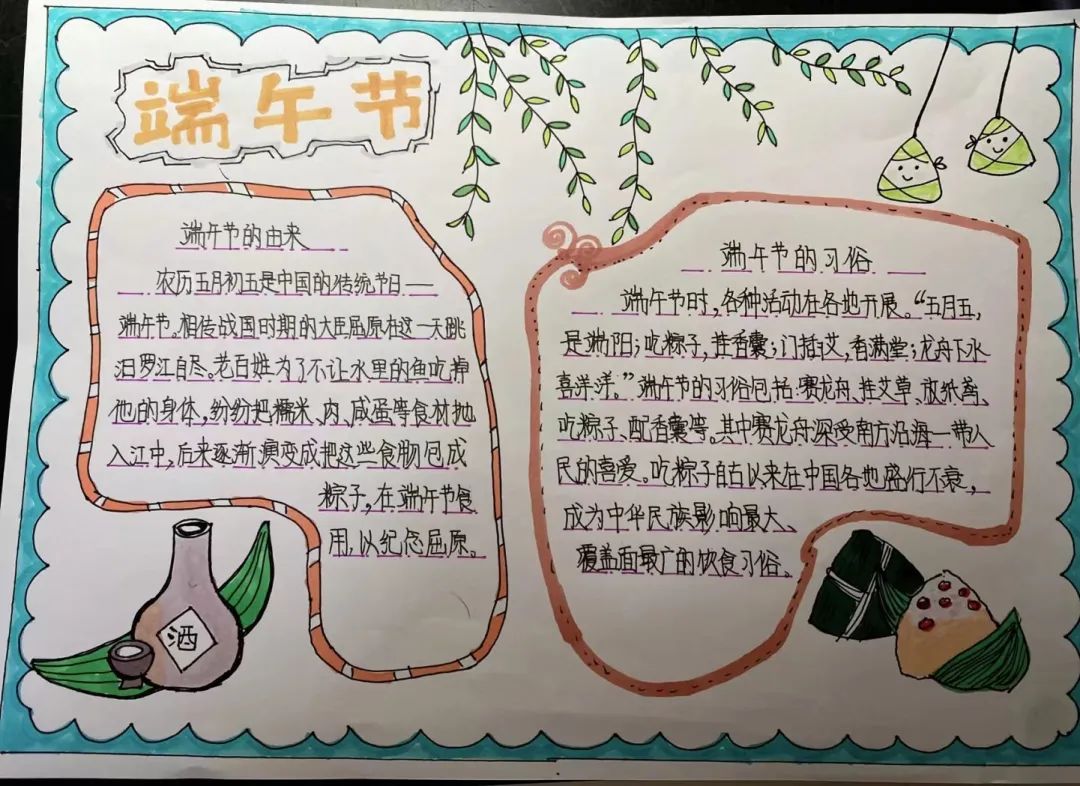 端午节
端午节的由来
农历五月初五是中国的传统节日——
端午节。相传战国时期的大臣屈原在这一天跳
汨罗江自尽。老百姓为了不让水里的鱼吃掉
他的身体，纷纷把糯米、肉、咸蛋等食材抛
入江中，后来逐渐演变成把这些食物包成
粽子，在端午节食
用，以纪念屈原。
酒
端午节的习俗
端午节时，各种活动在各地开展。“五月五，
是端阳；吃粽子，挂香囊；门插艾，香满堂；龙舟下水
喜洋洋。”端午节的习俗包括：赛龙舟、挂艾草、放纸鸢、
吃粽子、配香囊等。其中赛龙舟深受南方沿海一带人
民的喜爱。吃粽子自古以来在中国各地盛行不衰，
成为中华民族影响最大、
覆盖面最广的饮食习俗。